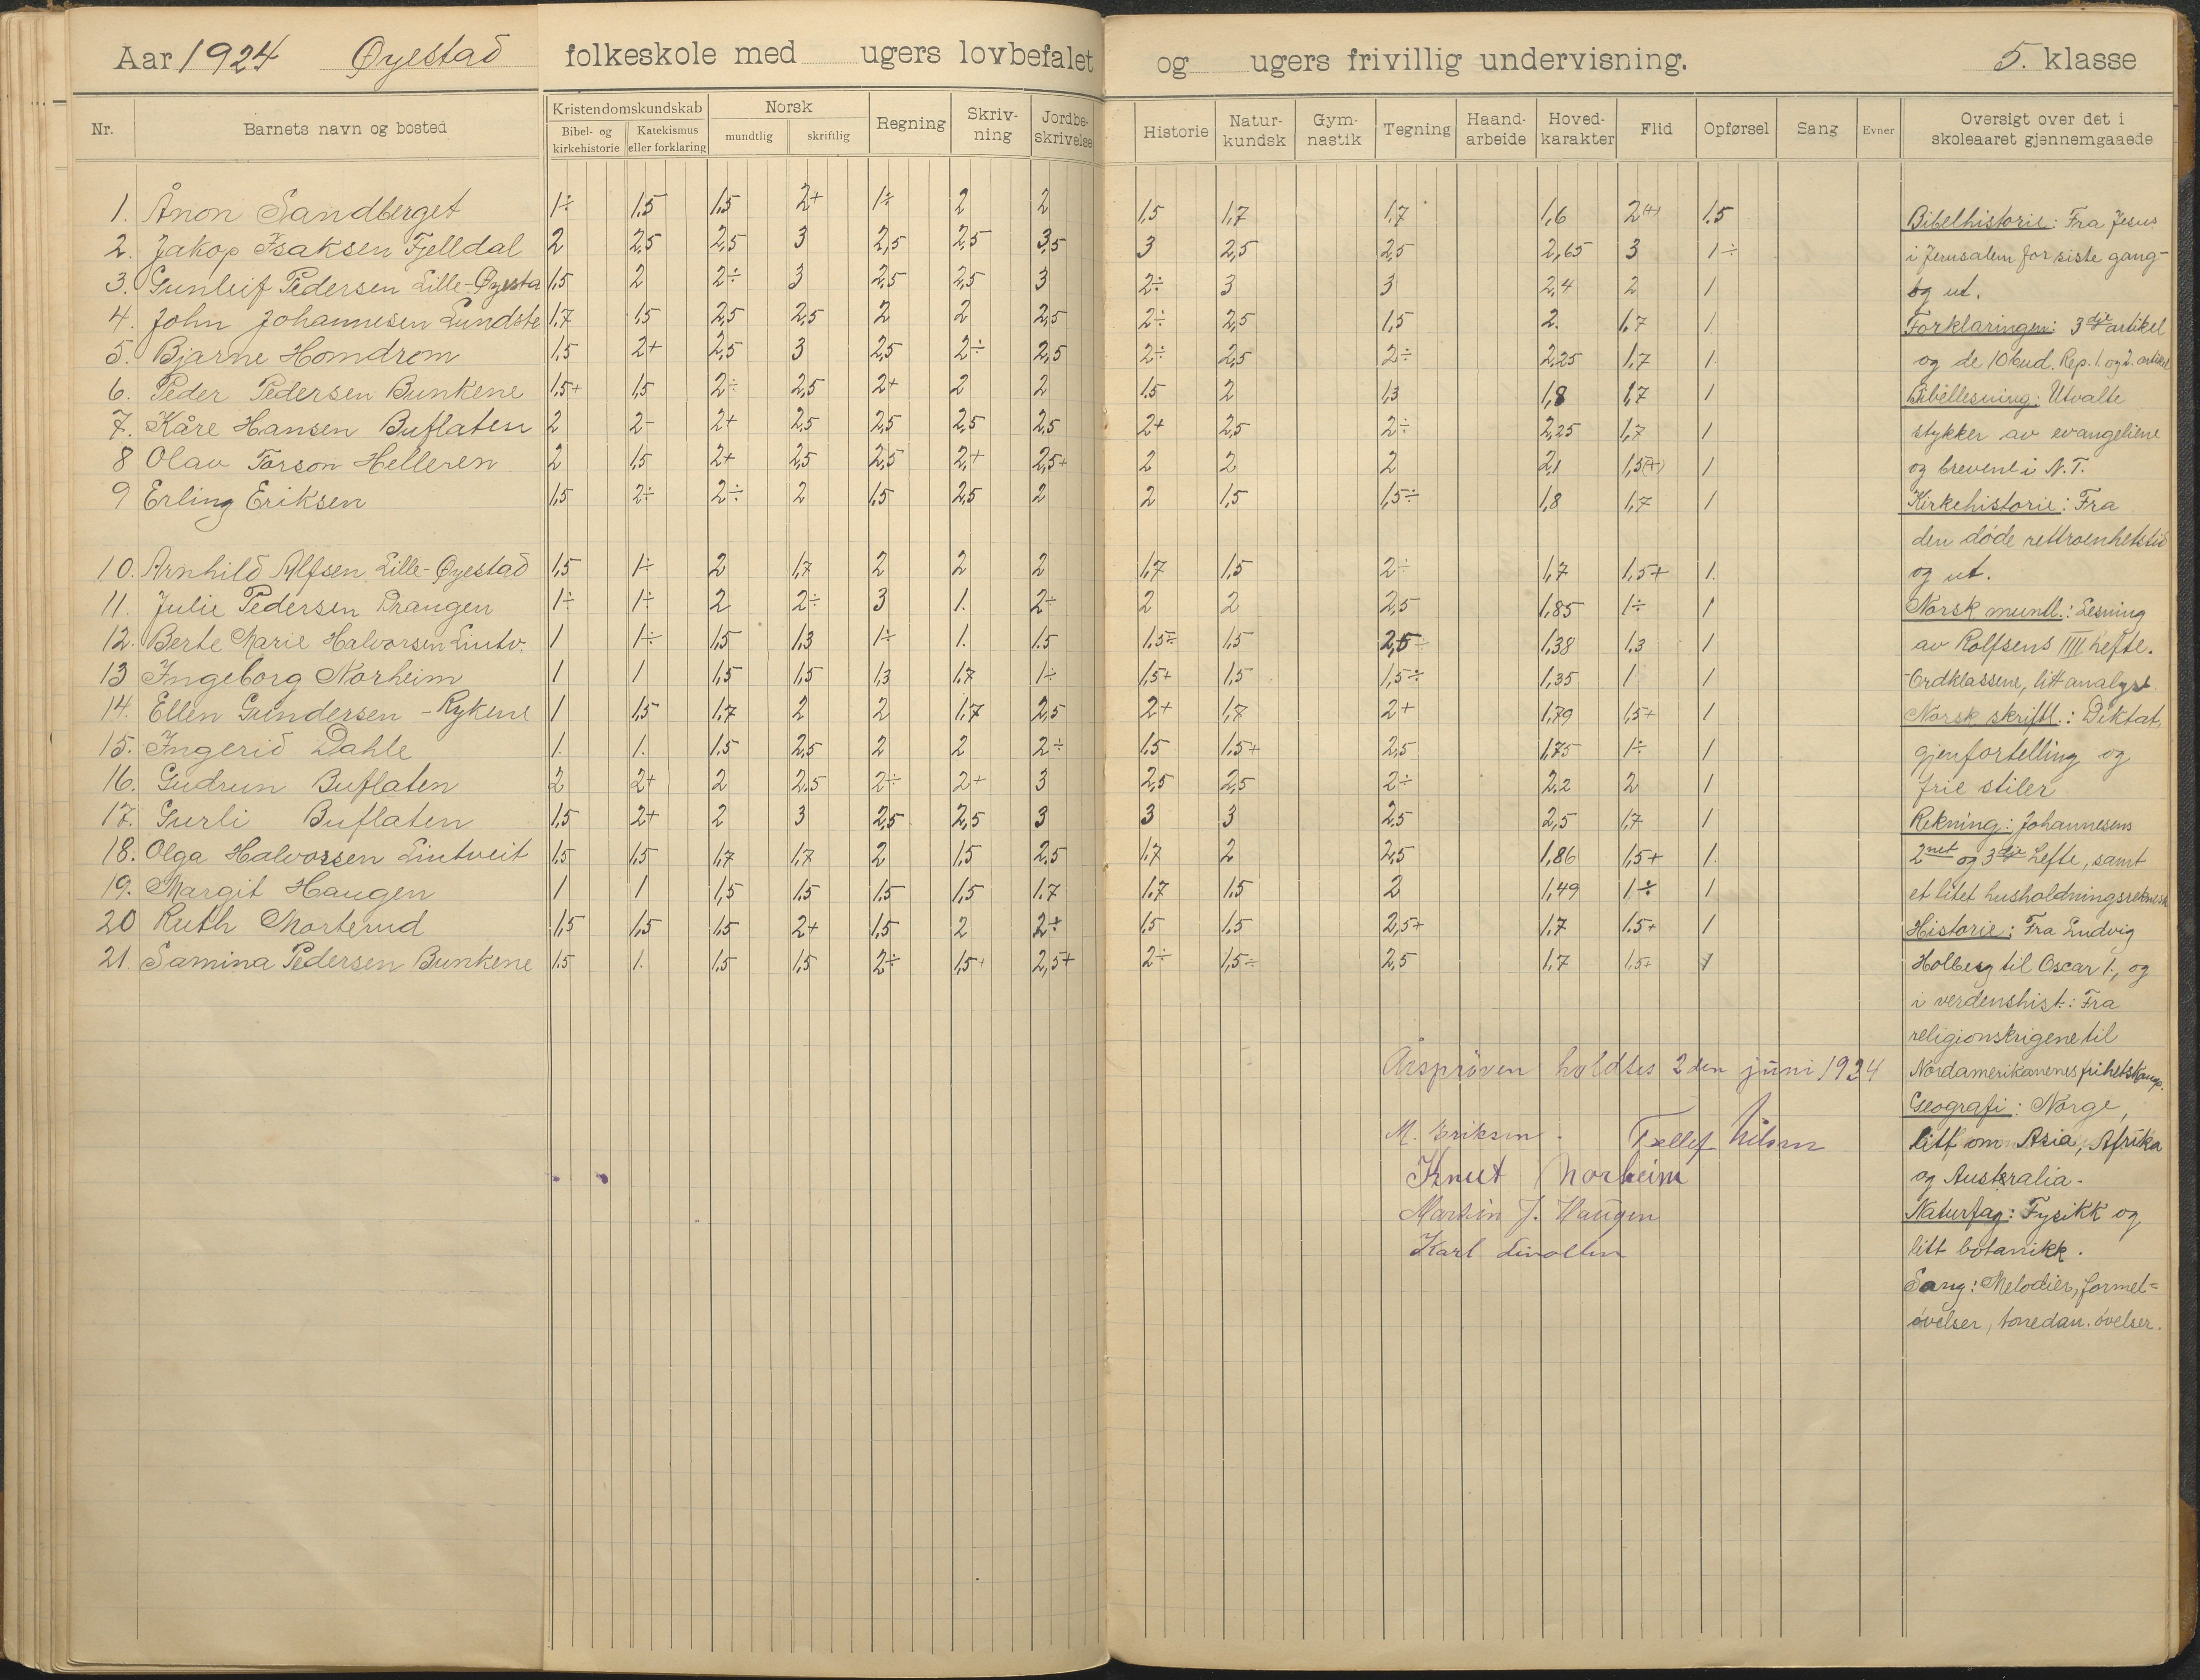 Aar 1924 Øyestad folkeskole med ugers lovbefalet og ugers frivillig undervisning. 5. klasse
Nr. Barnets navn og bosted Kristendomskundskab Bibel- og kirkehistorie Katekismus eller forklaring Norsk mundtlig skriftlig Regning Skriv-ning Jordbe-skrivelse Historie Natur-kundsk Gym-nastik Tegning Haand-arbeide Hoved-karakter Flid Opførsel Sang Evner Oversigt over det i skoleaaret gjennemgaaede
1. Ånon Sandberget 1÷ 1,5 1,5 2+ 1÷ 2 2 1,5 1,7 1,7 1,6 2(+) 1.5
2. Jakop Isaksen Fjelldal 2 2,5 2,5 3 2,5 2,5 3,5 3 2,5 2,5 2,65 3 1÷
3. Gunleif Pedersen Lille-Øyesta 1,5 2 2÷ 3 2,5 2,5 3 2÷ 3 3 2,4 2 1
4. John Johannesen Lundste 1,7 1,5 2,5 2,5 2 2 2,5 2÷ 2,5 1,5 2. 1,7 1.
5. Bjarne Homdrom 1,5 2+ 2,5 3 2,5 2÷ 2,5 2÷ 2,5 2÷ 2,25 1,7 1.
6. Peder Pedersen Bunkene 1,5+ 1,5 2÷ 2,5 2+ 2 2 1.5 2 1,3 1,8 1,7 1
7. Kåre Hansen Buflaten 2 2- 2+ 2,5 2,5 2,5 2,5 2+ 2,5 2÷ 2,25 1,7 1
8 Olav Torson Helleren 2 1,5 2+ 2,5 2,5 2,+ 2,5+ 2 2 2 2,1 1,5(+) 1
9 Erling Eriksen 1,5 2÷ 2÷ 2 1,5 2,5 2 2 1,5 1,5÷ 1,8 1,7 1
10. Arnhild Alfsen Lille-Øyestad 1,5 1÷ 2 1,7 2 2 2 1,7 1,5 2÷ 1,7 1,5+ 1.
11. Julie Pedersen Prangen 1÷ 1÷ 2 2÷ 3 1. 2÷ 2 2 2,5 1,85 1÷ 1
12. Berte Marie Halvorsen Lintv. 1 1÷ 1,5 1,3 1÷ 1. 1.5 1.5÷ 1,5 2,5÷ 1,38 1.3 1
13 Ingeborg Norheim 1 1 1,5 1,5 1,3 1.7 1÷ 1,5+ 1,5 1,5÷ 1,35 1 1
14. Ellen Gundersen - Rykene 1 1,5 1,7 2 2 1,7 2,5 2+ 1,7 2+ 1,79 1,5+ 1
15. Ingerid Dahle 1. 1. 1.5 2,5 2 2 2÷ 1.5 1.5+ 2,5 1,75 1÷ 1
16. Gudrun Buflaten 2 2+ 2 2.5 2÷ 2+ 3 2,5 2,5 2÷ 2.2 2 1
17. Gurli Buflaten 1,5 2+ 2 3 2,5 2,5 3 3 3 2,5 2,5 1,7 1
18. Olga Halvorsen Lintveit 1,5 1,5 1,7 1,7 2 1,5 2.5 1,7 2 2,5 1,86 1,5+ 1.
19. Margit Haugen 1 1 1,5 1.5 1.5 1,5 1.7 1.7 1.5 2 1,49 1÷ 1
20 Ruth Morterud 1,5 1,5 1,5 2+ 1,5 2 2÷ 1,5 1.5 2,5+ 1.7 1.5+ 1
21. Samina Pedersen Bunkene 1.5 1. 1,5 1,5 2÷ 1,5+ 2,5+ 2÷ 1,5÷ 2,5 1,7 1,5+ 1
Bibelhistorie: Fra Jesus
i Jerusalem for siste gang
og ut.
Forklaringen: 3dje artikel
og de 10 bud. Rep. 1. og 2. artikel
Bibellesning: Utvalte
stykker av evangeliene
og brevene i N.T.
Kirkehistorie: Fra
den døde rettroenhetstid
og ut.
Norsk mundl.: Lesning
av Rolfsens IIII hefte.
Ordklassene, litt analyse
Norsk skriftl.: Diktat,
gjenfortelling og
frie stiler
Rekning: Johannesens
2net og 3dje hefte, samt
et litet husholdningsreknesk
Historie: Fra Ludvig
Holberg til Oscar 1., og
i verdenshist.: Fra
religionskrigene til
Nordamerikanenes frihetskamp.
Geografi: Norge,
litt om Asia, Afrika
og Australia.
Naturfag: Fysikk og
litt botanikk.
Sang: Melodier, formel=
øvelser, tonedan. øvelser.
Årsprøven holdtes 2den juni 1924
M. Eriksen. Tellef Nilsen
Knut Norheim
Martin J. Haugen
Karl